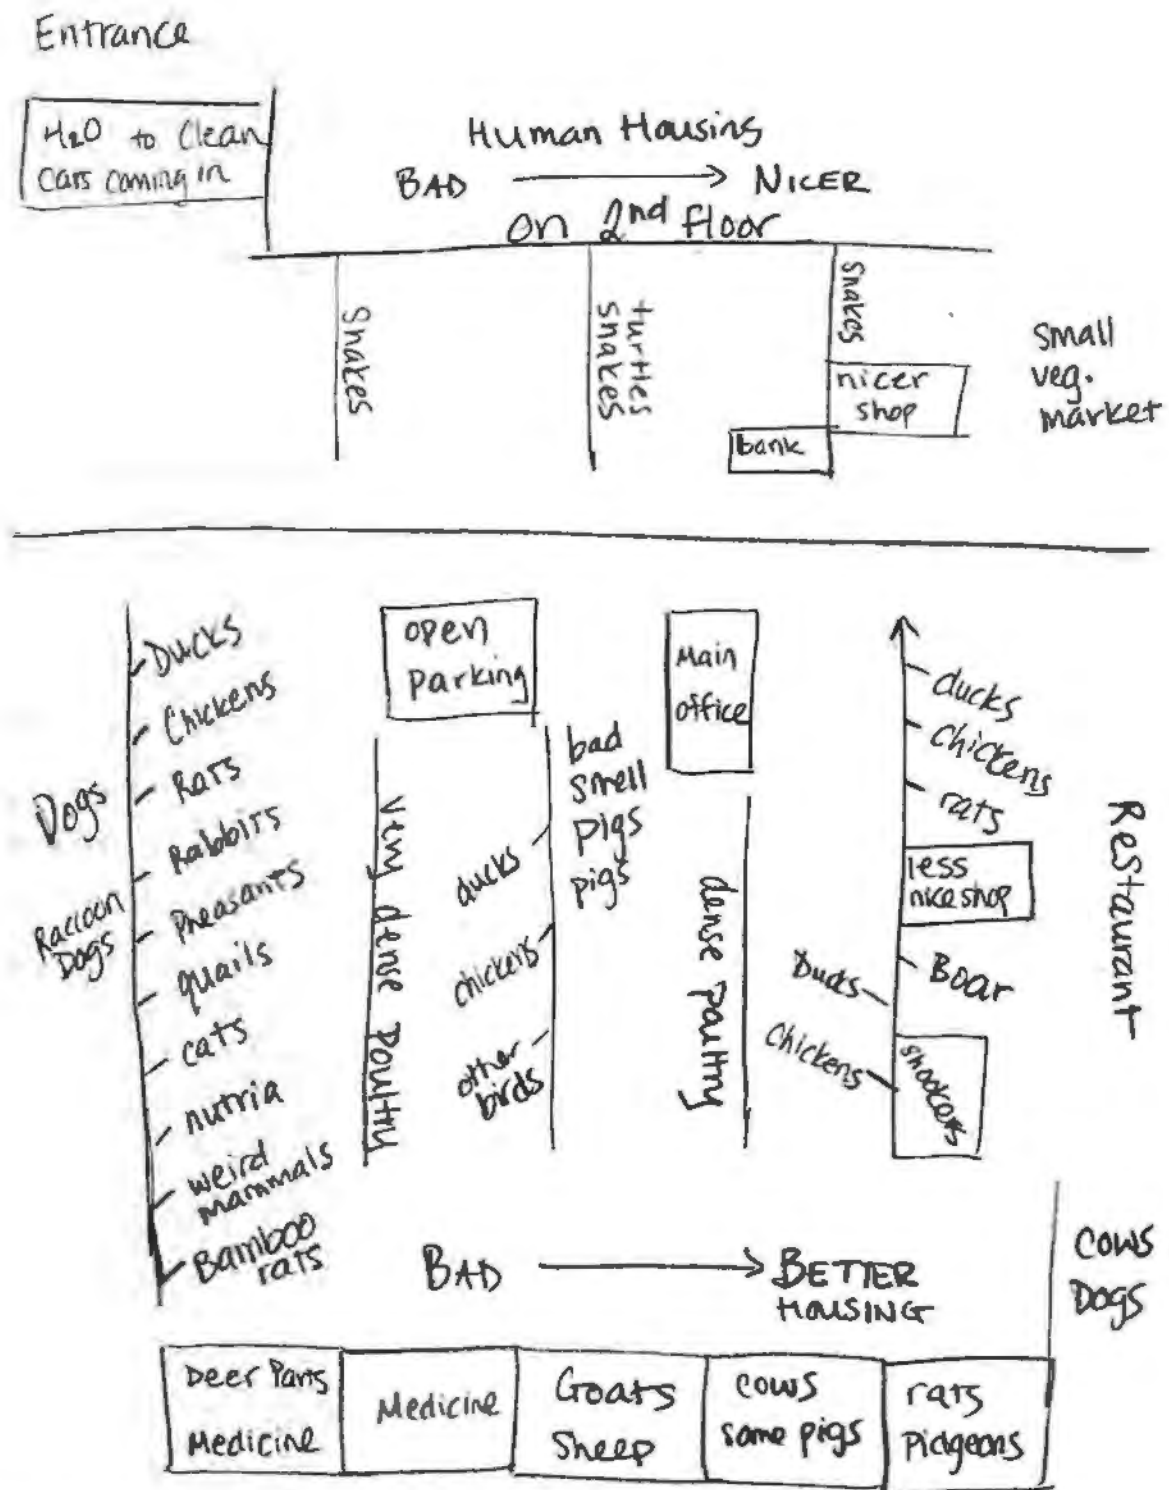 Entrance
H2O to Clean
Cars coming in
Human Housing
BAD NICER
on 2nd floor
Snakes
turtles
snakes
Snakes
nicer
shop
bank
small
veg.
market
Dogs
Raccoon
Dogs
Ducks
Chickens
Rats
Rabbits
Pheasants
quails
cats
nutria
weird
mammals
Bamboo
rats
open
Parking
very dense Poultry
ducks
chickens
other
birds
bad
smell
pigs
pigs
Main
office
dense poultry
ducks
chickens
rats
less
nice shop
Boar
Ducks
Chickens
Restaurant
BAD BETTER
HOUSING
COWS
DOGS
Deer Parts
Medicine
Medicine
Goats
Sheep
cows
some pigs
rats
Pidgeons